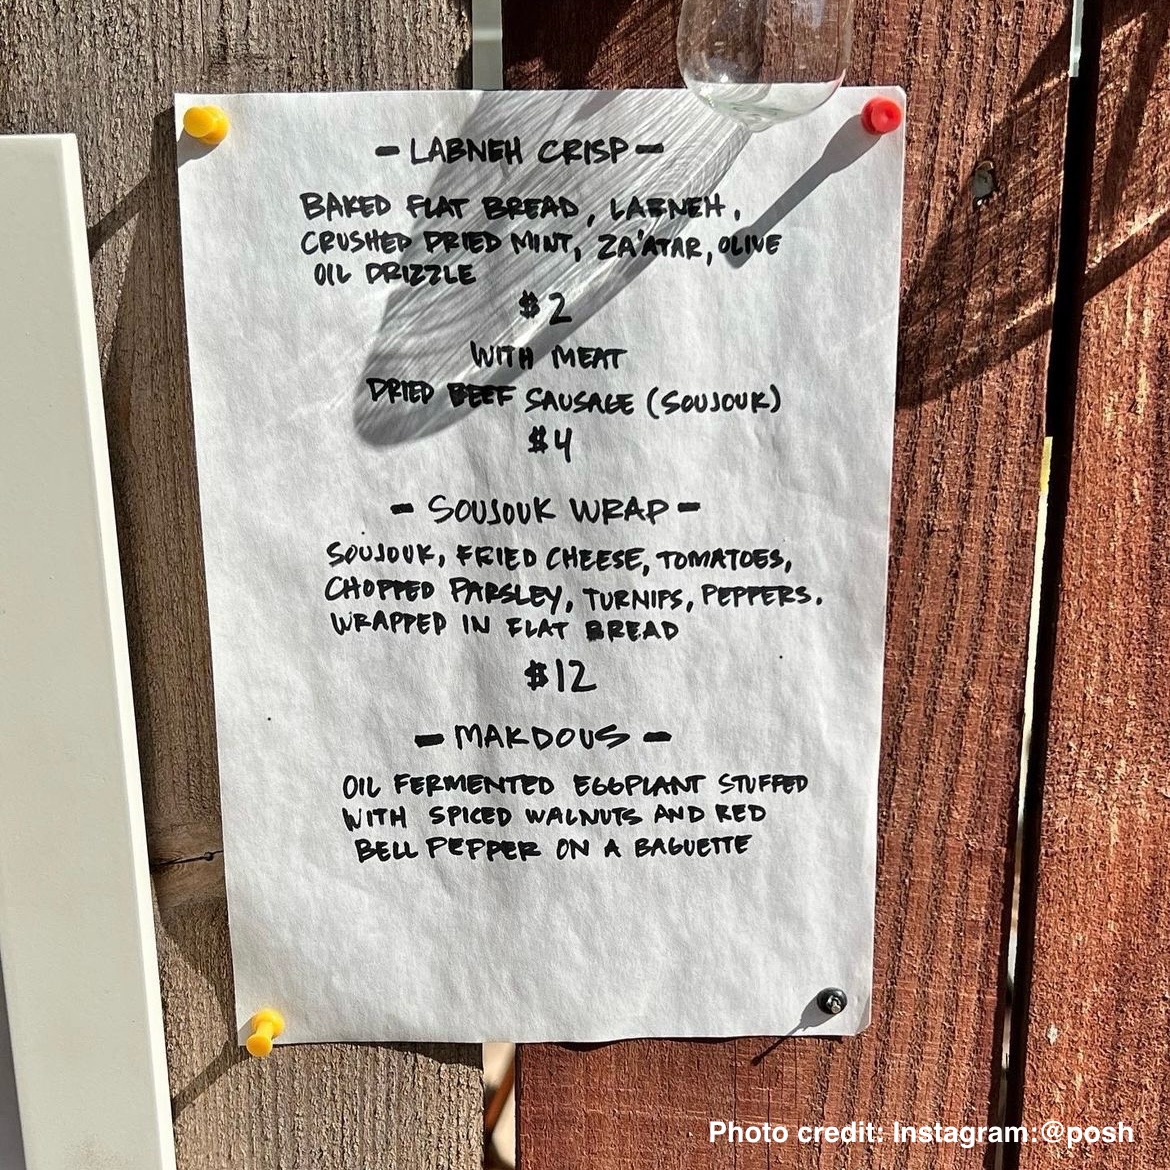 - LABNEH CRISP -
BAKED FLAT BREAD, LABNEH,
CRUSHED DRIED MINT, ZA'ATAR, OLIVE
OIL DRIZZLE
$2
WITH MEAT
DRIED BEEF SAUSAGE (SOUJOUK)
$4
- SOUJOUK WRAP -
SOUJOUK, FRIED CHEESE, TOMATOES,
CHOPPED PARSLEY, TURNIPS, PEPPERS.
WRAPPED IN FLAT BREAD
$12
- MAKDOUS -
OIL FERMENTED EGGPLANT STUFFED
WITH SPICED WALNUTS AND RED
BELL PEPPER ON A BAGUETTE
Photo credit: Instagram:@posh